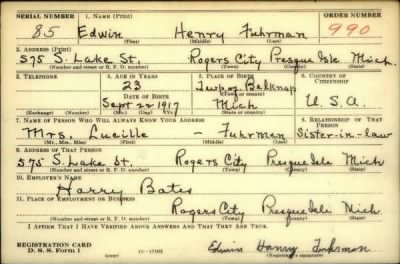 SERIAL NUMBER 1. NAME (Print) ORDER NUMBER
85 Edwin Henry Fuhrman 990
(First) (Middle) (Last)
2. ADDRESS (Print)
575 S. Lake St. Rogers City Presque Isle Mich.
(Number and street or R. F. D. number) (Town) (County) (State)
3. TELEPHONE 4. AGE IN YEARS 5. PLACE OF BIRTH 6. COUNTRY OF CITIZENSHIP
23 Twp of Belknap
DATE OF BIRTH (Town or county)
Sept 22 1917 Mich. U.S.A.
(Exchange) (Number) (Mo.) (Day) (Yr.) (State or country)
7. NAME OF PERSON WHO WILL ALWAYS KNOW YOUR ADDRESS 8. RELATIONSHIP OF THAT PERSON
Mrs. Lucille - Fuhrman Sister-in-law
(Mr., Mrs., Miss) (First) (Middle) (Last)
9. ADDRESS OF THAT PERSON
575 S. Lake St. Rogers City Presque Isle Mich
(Number and street or R. F. D. number) (Town) (County) (State)
10. EMPLOYER'S NAME
Harry Bates
11. PLACE OF EMPLOYMENT OR BUSINESS
Rogers City Presque Isle Mich.
(Number and street or R. F. D. number) (Town) (County) (State)
I AFFIRM THAT I HAVE VERIFIED ABOVE ANSWERS AND THAT THEY ARE TRUE.
REGISTRATION CARD
D. S. S. Form 1 (over) Edwin Henry Fuhrman
(Registrant's signature)